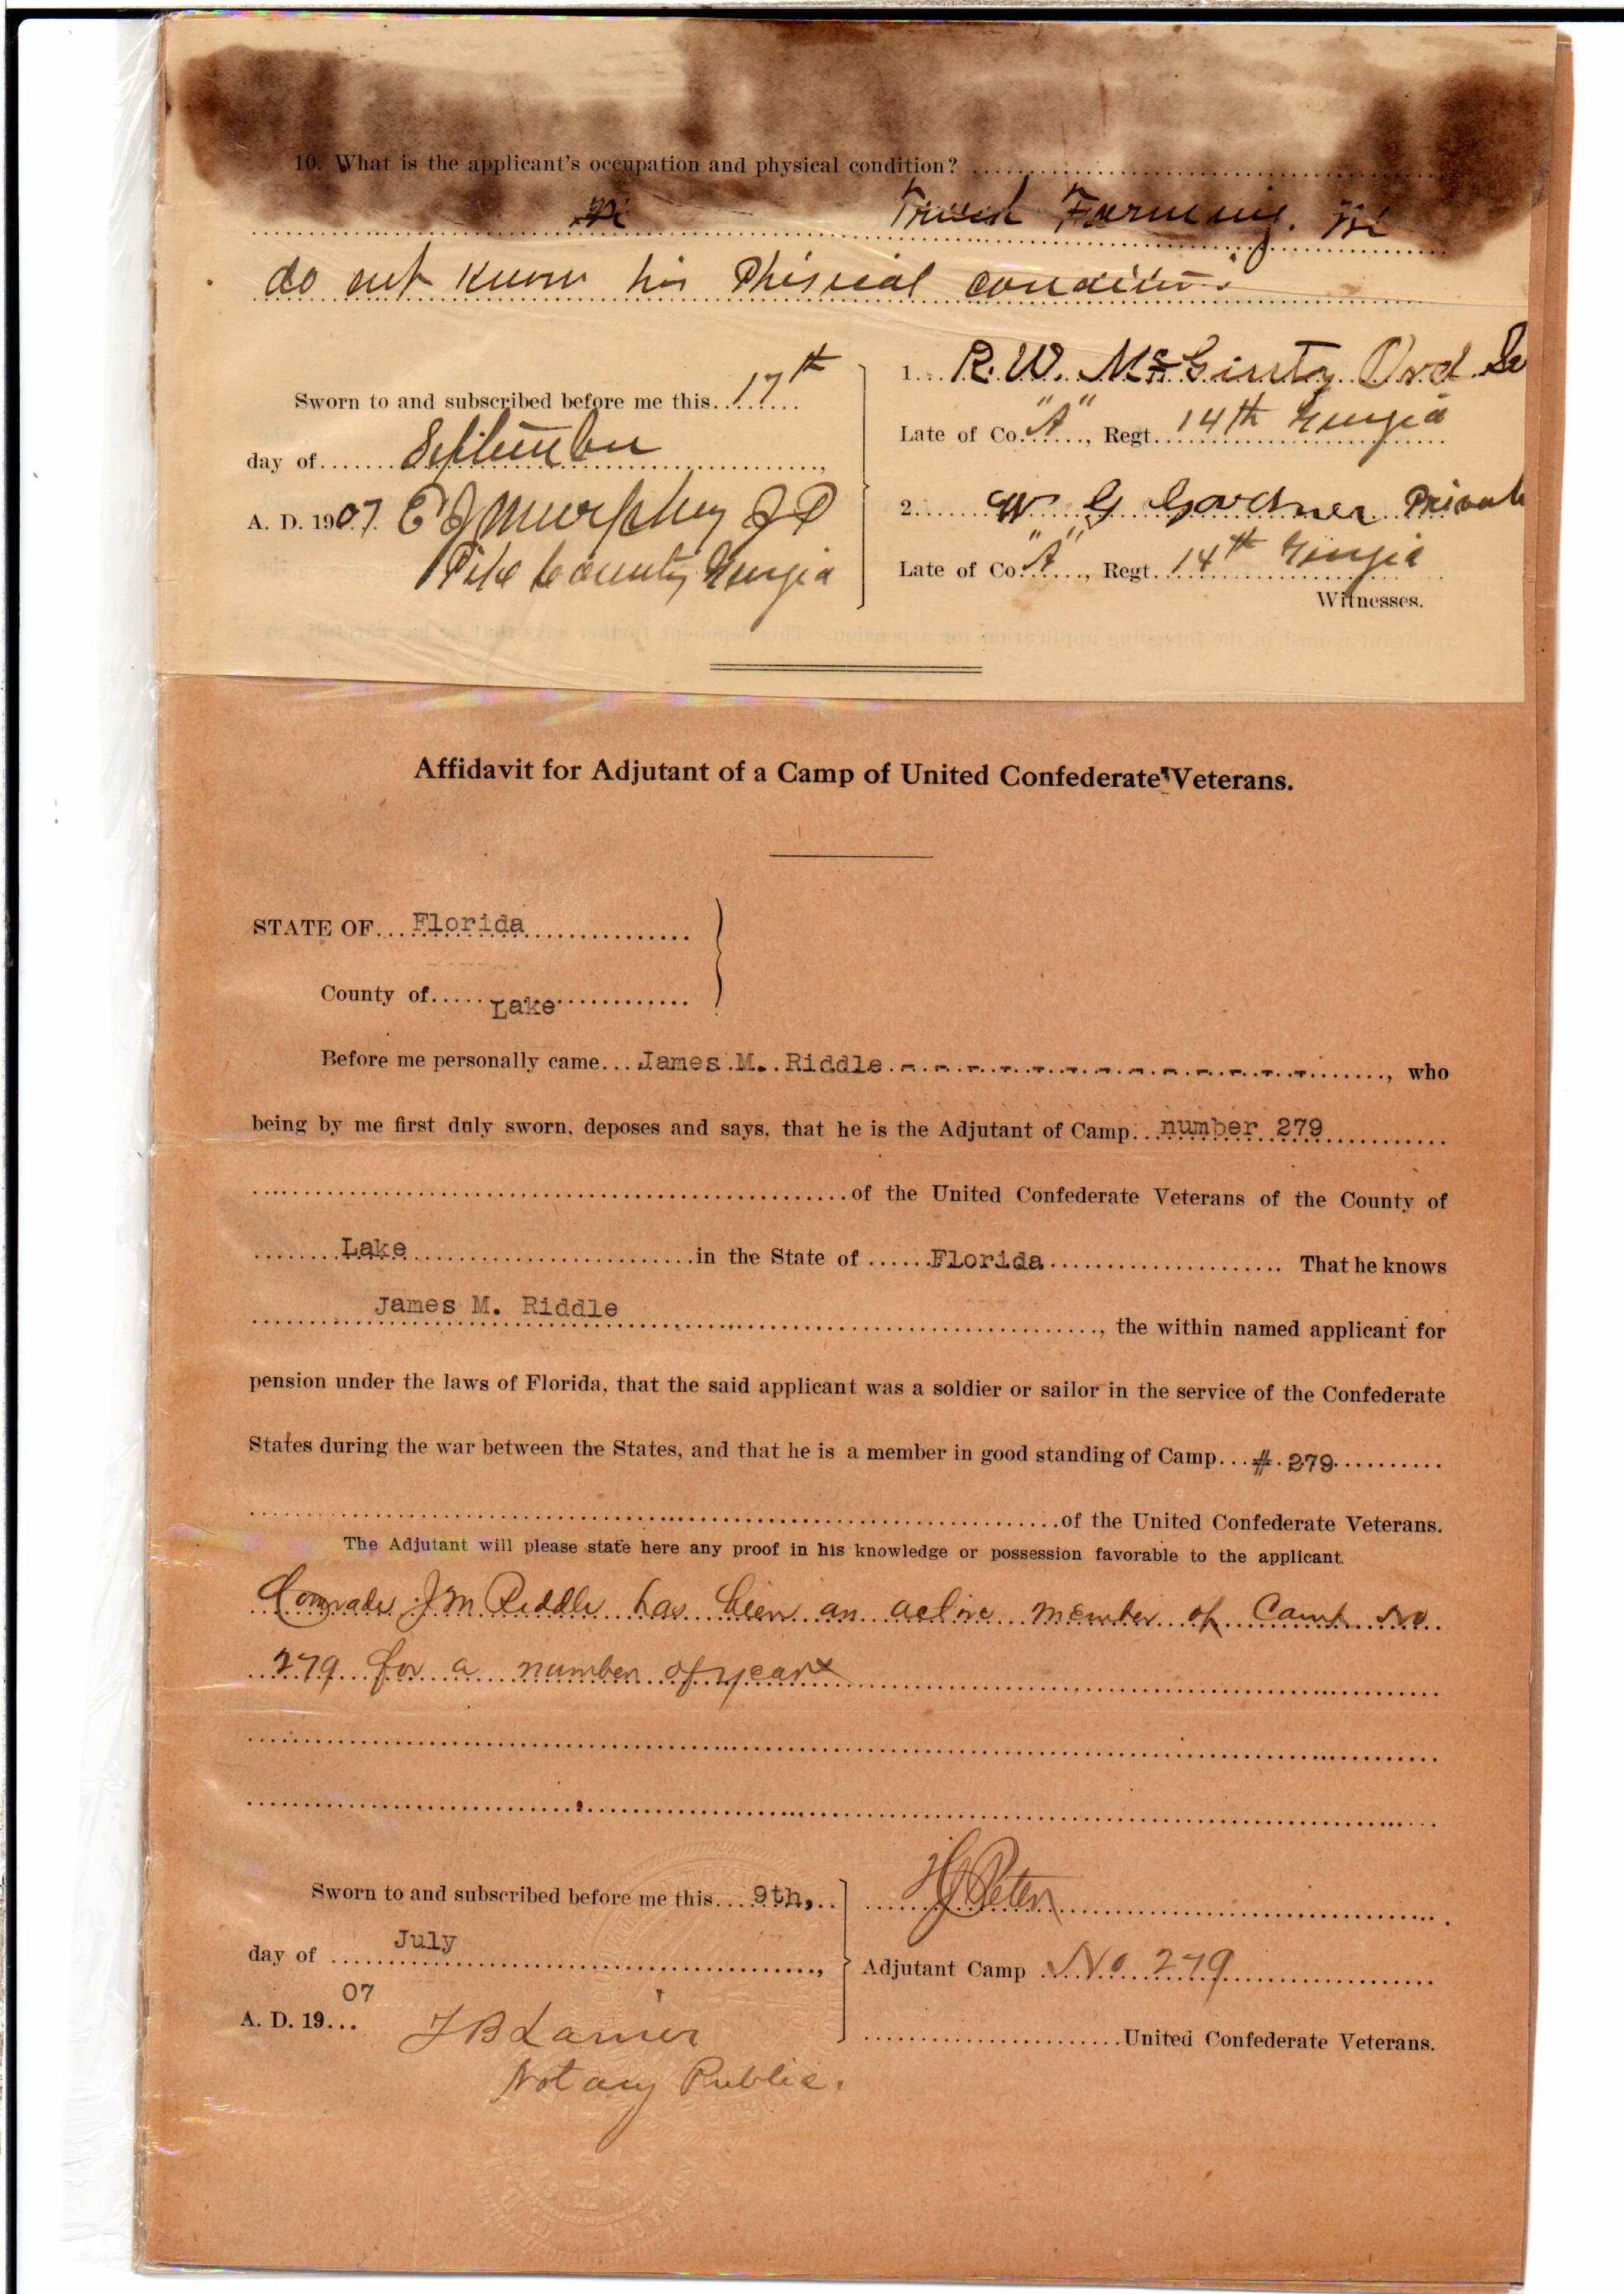 10. What is the applicant's occupation and physical condition?
Truck Farming. We
do not know his Phisical condition.
Sworn to and subscribed before me this 17th
day of September,
A. D. 1907. E J Murphey J P
Pike County, Georgia
1. R. W. McGinty Ord Se
Late of Co. "A", Regt. 14th Georgia
2. W G Gardner Private
Late of Co. "A", Regt. 14th Georgia
Witnesses.
Affidavit for Adjutant of a Camp of United Confederate Veterans.
STATE OF Florida
County of Lake
Before me personally came James M. Riddle, who
being by me first duly sworn, deposes and says, that he is the Adjutant of Camp number 279
of the United Confederate Veterans of the County of
Lake in the State of Florida That he knows
James M. Riddle, the within named applicant for
pension under the laws of Florida, that the said applicant was a soldier or sailor in the service of the Confederate
States during the war between the States, and that he is a member in good standing of Camp # 279
of the United Confederate Veterans.
The Adjutant will please state here any proof in his knowledge or possession favorable to the applicant.
Comrade J M Riddle has been an active member of Camp No
279 for a number of years
Sworn to and subscribed before me this 9th,
day of July,
A. D. 1907
J B Lanier
Notary Public.
H J Peter
Adjutant Camp No 279
United Confederate Veterans.